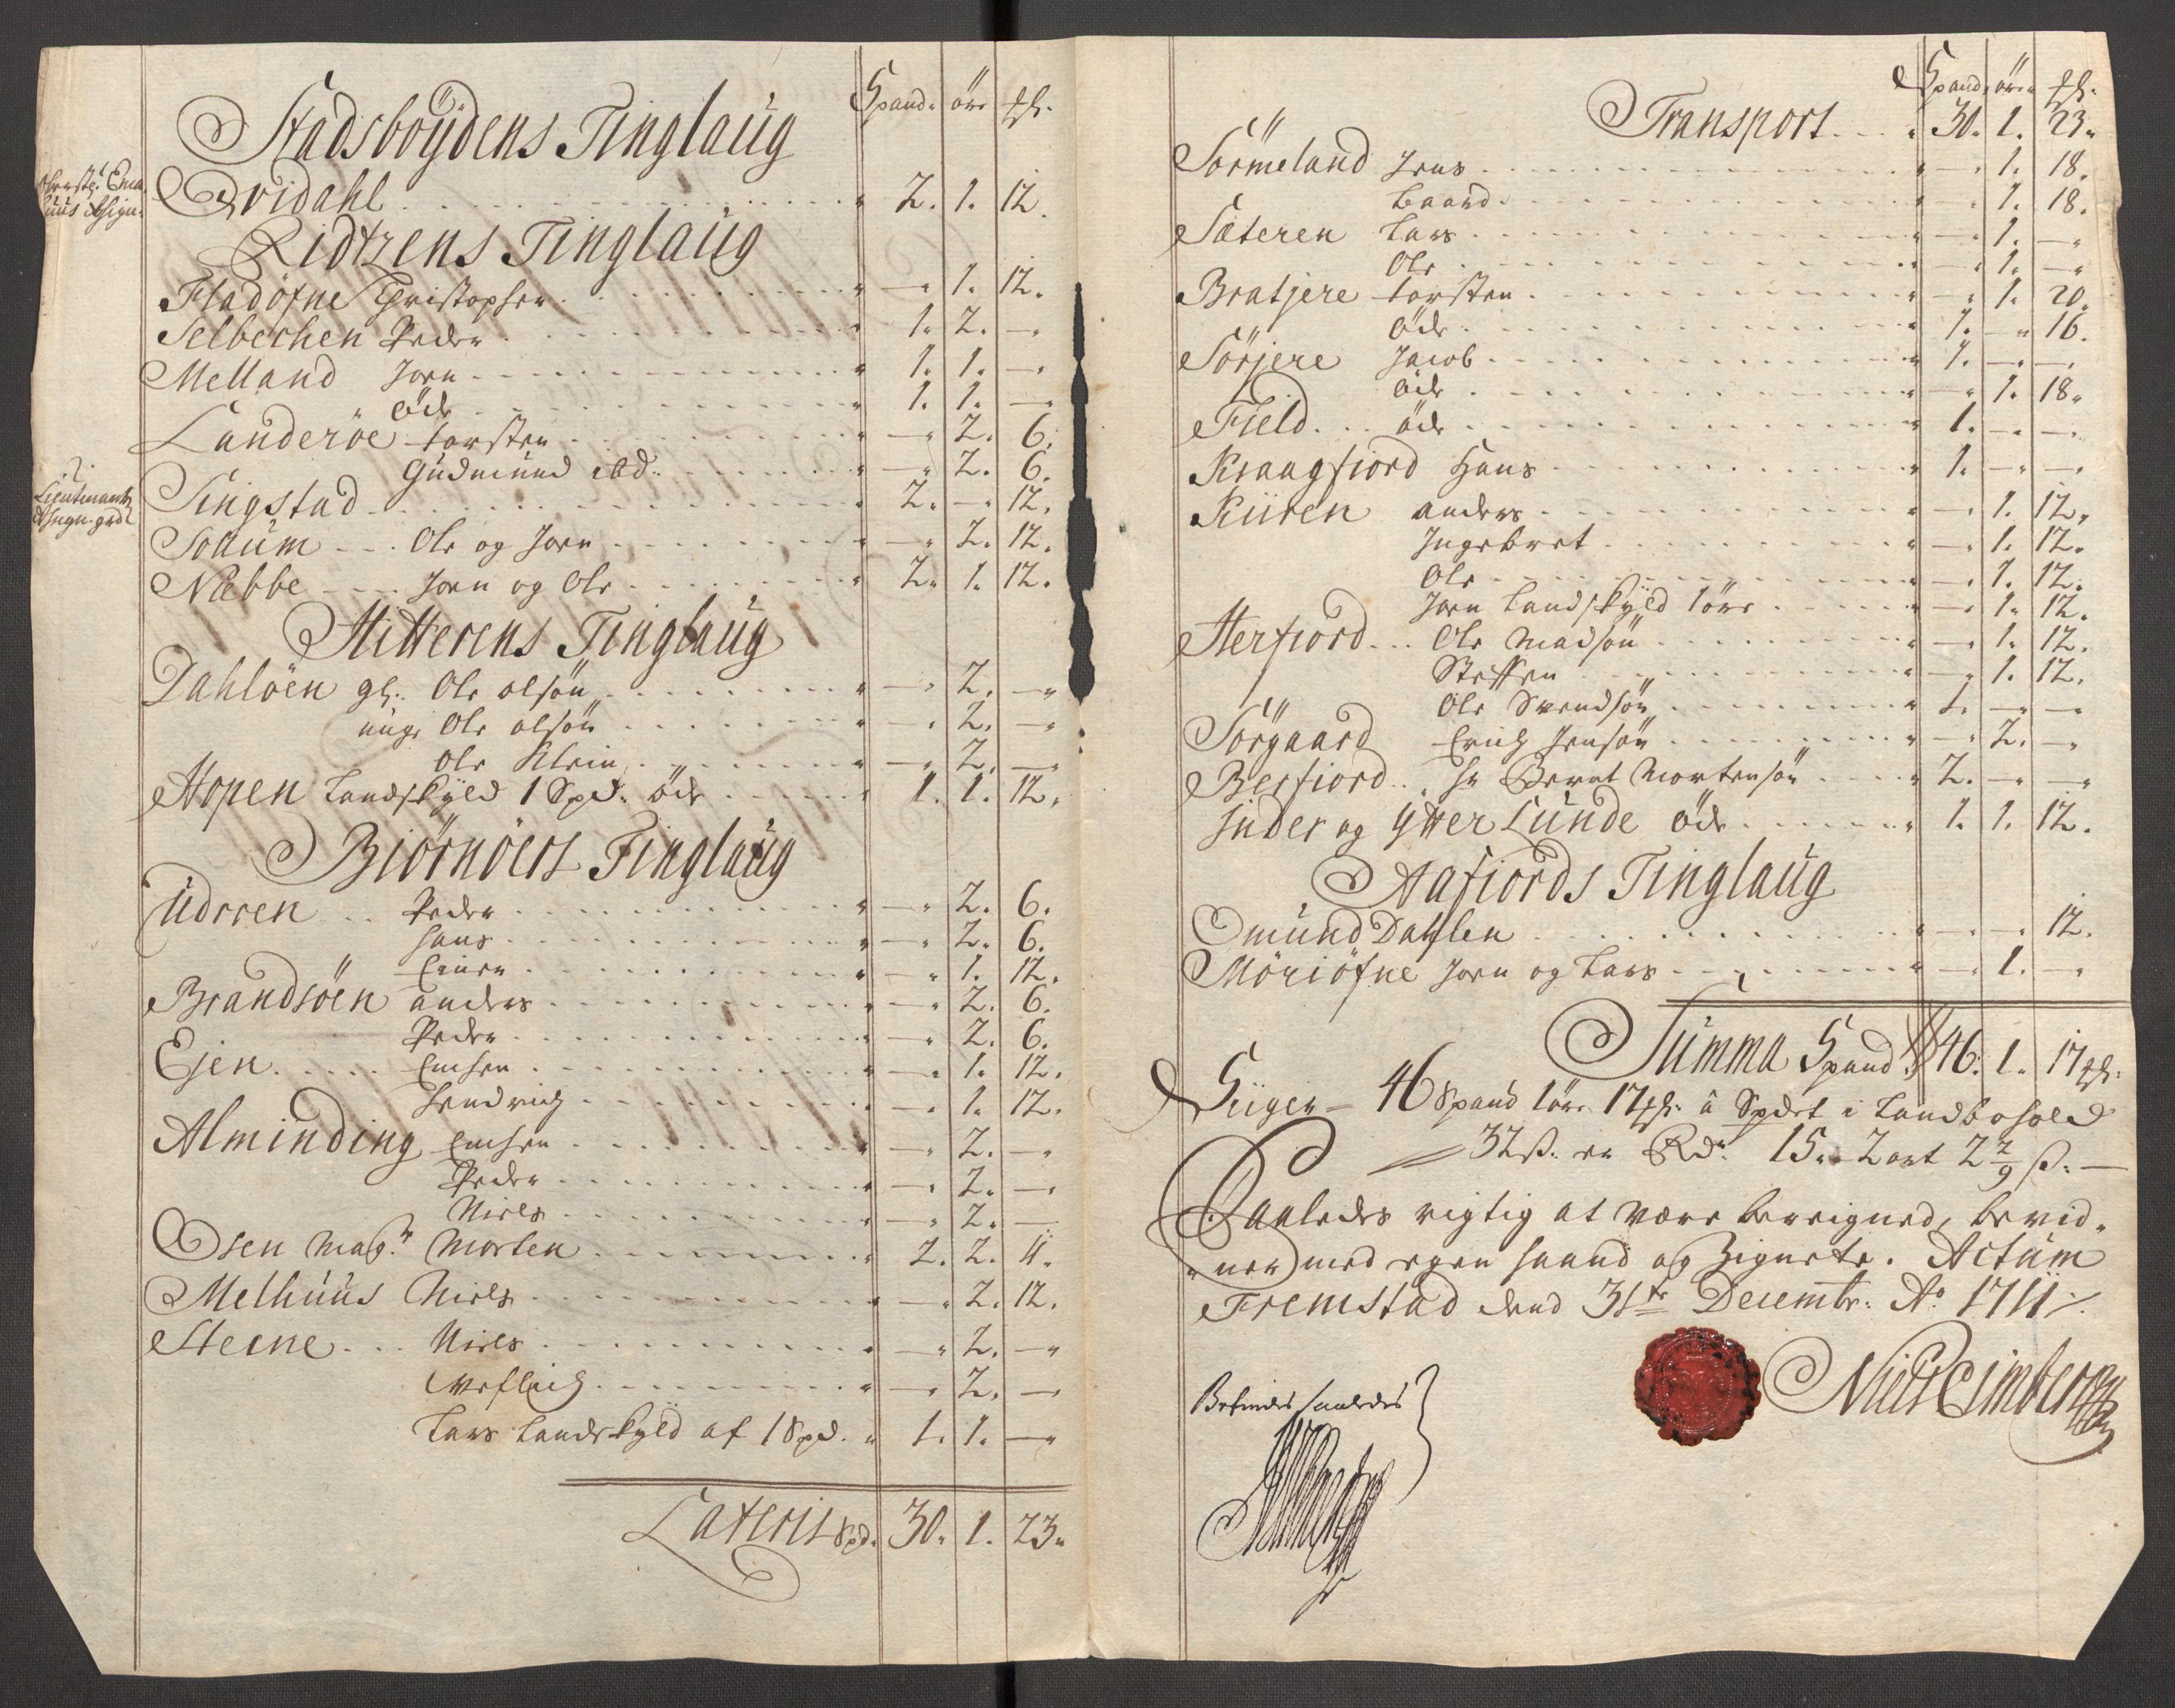 Spand. öre ₰.
Stadsboÿdens Tinglaug
Qvidahl 2. 1. 12.
Ridtzens Tinglaug
Fladöfne Christopher - 1. 12.
Selbechen Peder 1. 2. -
Melland Joen 1. 1. -
öde 1. 1. -
Landeröe torsten - 2. 6.
Gudmund ibd: - 2. 6.
Lieutnantz
Singstad 2. - 12.
Sollum Ole og Joen - 2. 12.
Næbbe Joen og Ole 2. 1. 12.
Hitterens Tinglaug
Dahlöen gl. Ole olsön - 2. -
unge Ole olsön - 2. -
Ole Klein - 2. -
Hopen Landskÿld 1 Spd. öde 1. 1. 12.
Biörnöers Tinglaug
Udreen Peder - 2. 6.
Hans - 2. 6.
Einer - 1. 12.
Brandsöen anders - 2. 6.
Peder - 2. 6.
Ejen - 1. 12.
Hendrich - 1. 12.
Alminding - 2. -
Peder - 2. -
Niels - 2. -
Osen Morten 2. 2. 11.
Melhuus Niels - 2. 12.
Steene Niels - 2. -
- 2. -
Lars Landskÿld af 1 Spd. 1. 1. -
Lateris Spd. 30. 1. 23.
Spand öre ₰.
Transport 30. 1. 23.
Sörmeland Jens - 1. 18.
Baard - 1. 18.
Sæteren Lars - 1. -
Ole - 1. -
Bratjere torsten - 1. 20.
öde 1. - 16.
Sörjere Jacob 1. - -
öde - 1. 18.
Field öde 1. - -
Kraagfiord Hans 1. - -
Kiiren anders - 1. 12.
Ingebret - 1. 12.
Ole - 1. 12.
Joen Landskÿld 1 öre - 1. 12.
Herfiord Ole Madsön - 1. 12.
Steffen - 1. 12.
Ole Svendsön 1. - -
Sörgaard Erich Jensön - 2. -
Berfiord Hr Bernt Mortensön 2. - -
Inder og Ytter Lunde öde 1. 1. 12.
Aafiords Tinglaug
Omund Dahlen - - 12.
Möriöfne Joen og Lars - 1. -
Summa Spand 46. 1. 17 ₰.
Siiger 46 Spand 1 öre 17 ₰. â Spdet i Landbohold
32 ß. er Rd. 15. 2 ort 2 2/9 ß.
Saaledes rigtig at være bereigned, bevid-
ner med egen haand og Zignete. Actum
Fremstad dend 31te Decembr: Ao 1711
Befindes saaledes